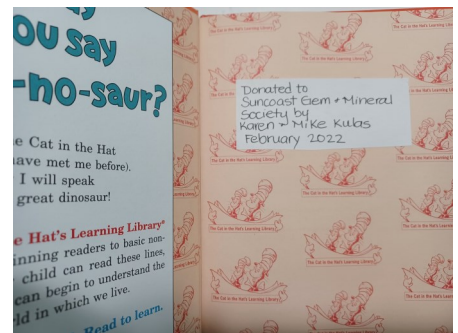 OU SAY
-no-saur?
e Cat in the Hat
have met me before).
I will speak
great dinosaur!
e Hat's Learning Library®
inning readers to basic non-
child can read these lines,
can begin to understand the
ld in which we live.
Read to learn.
Donated to
Suncoast Gem + Mineral
Society by
Karen + Mike Kulas
February 2022
The Cat in the Hat's Learning Library